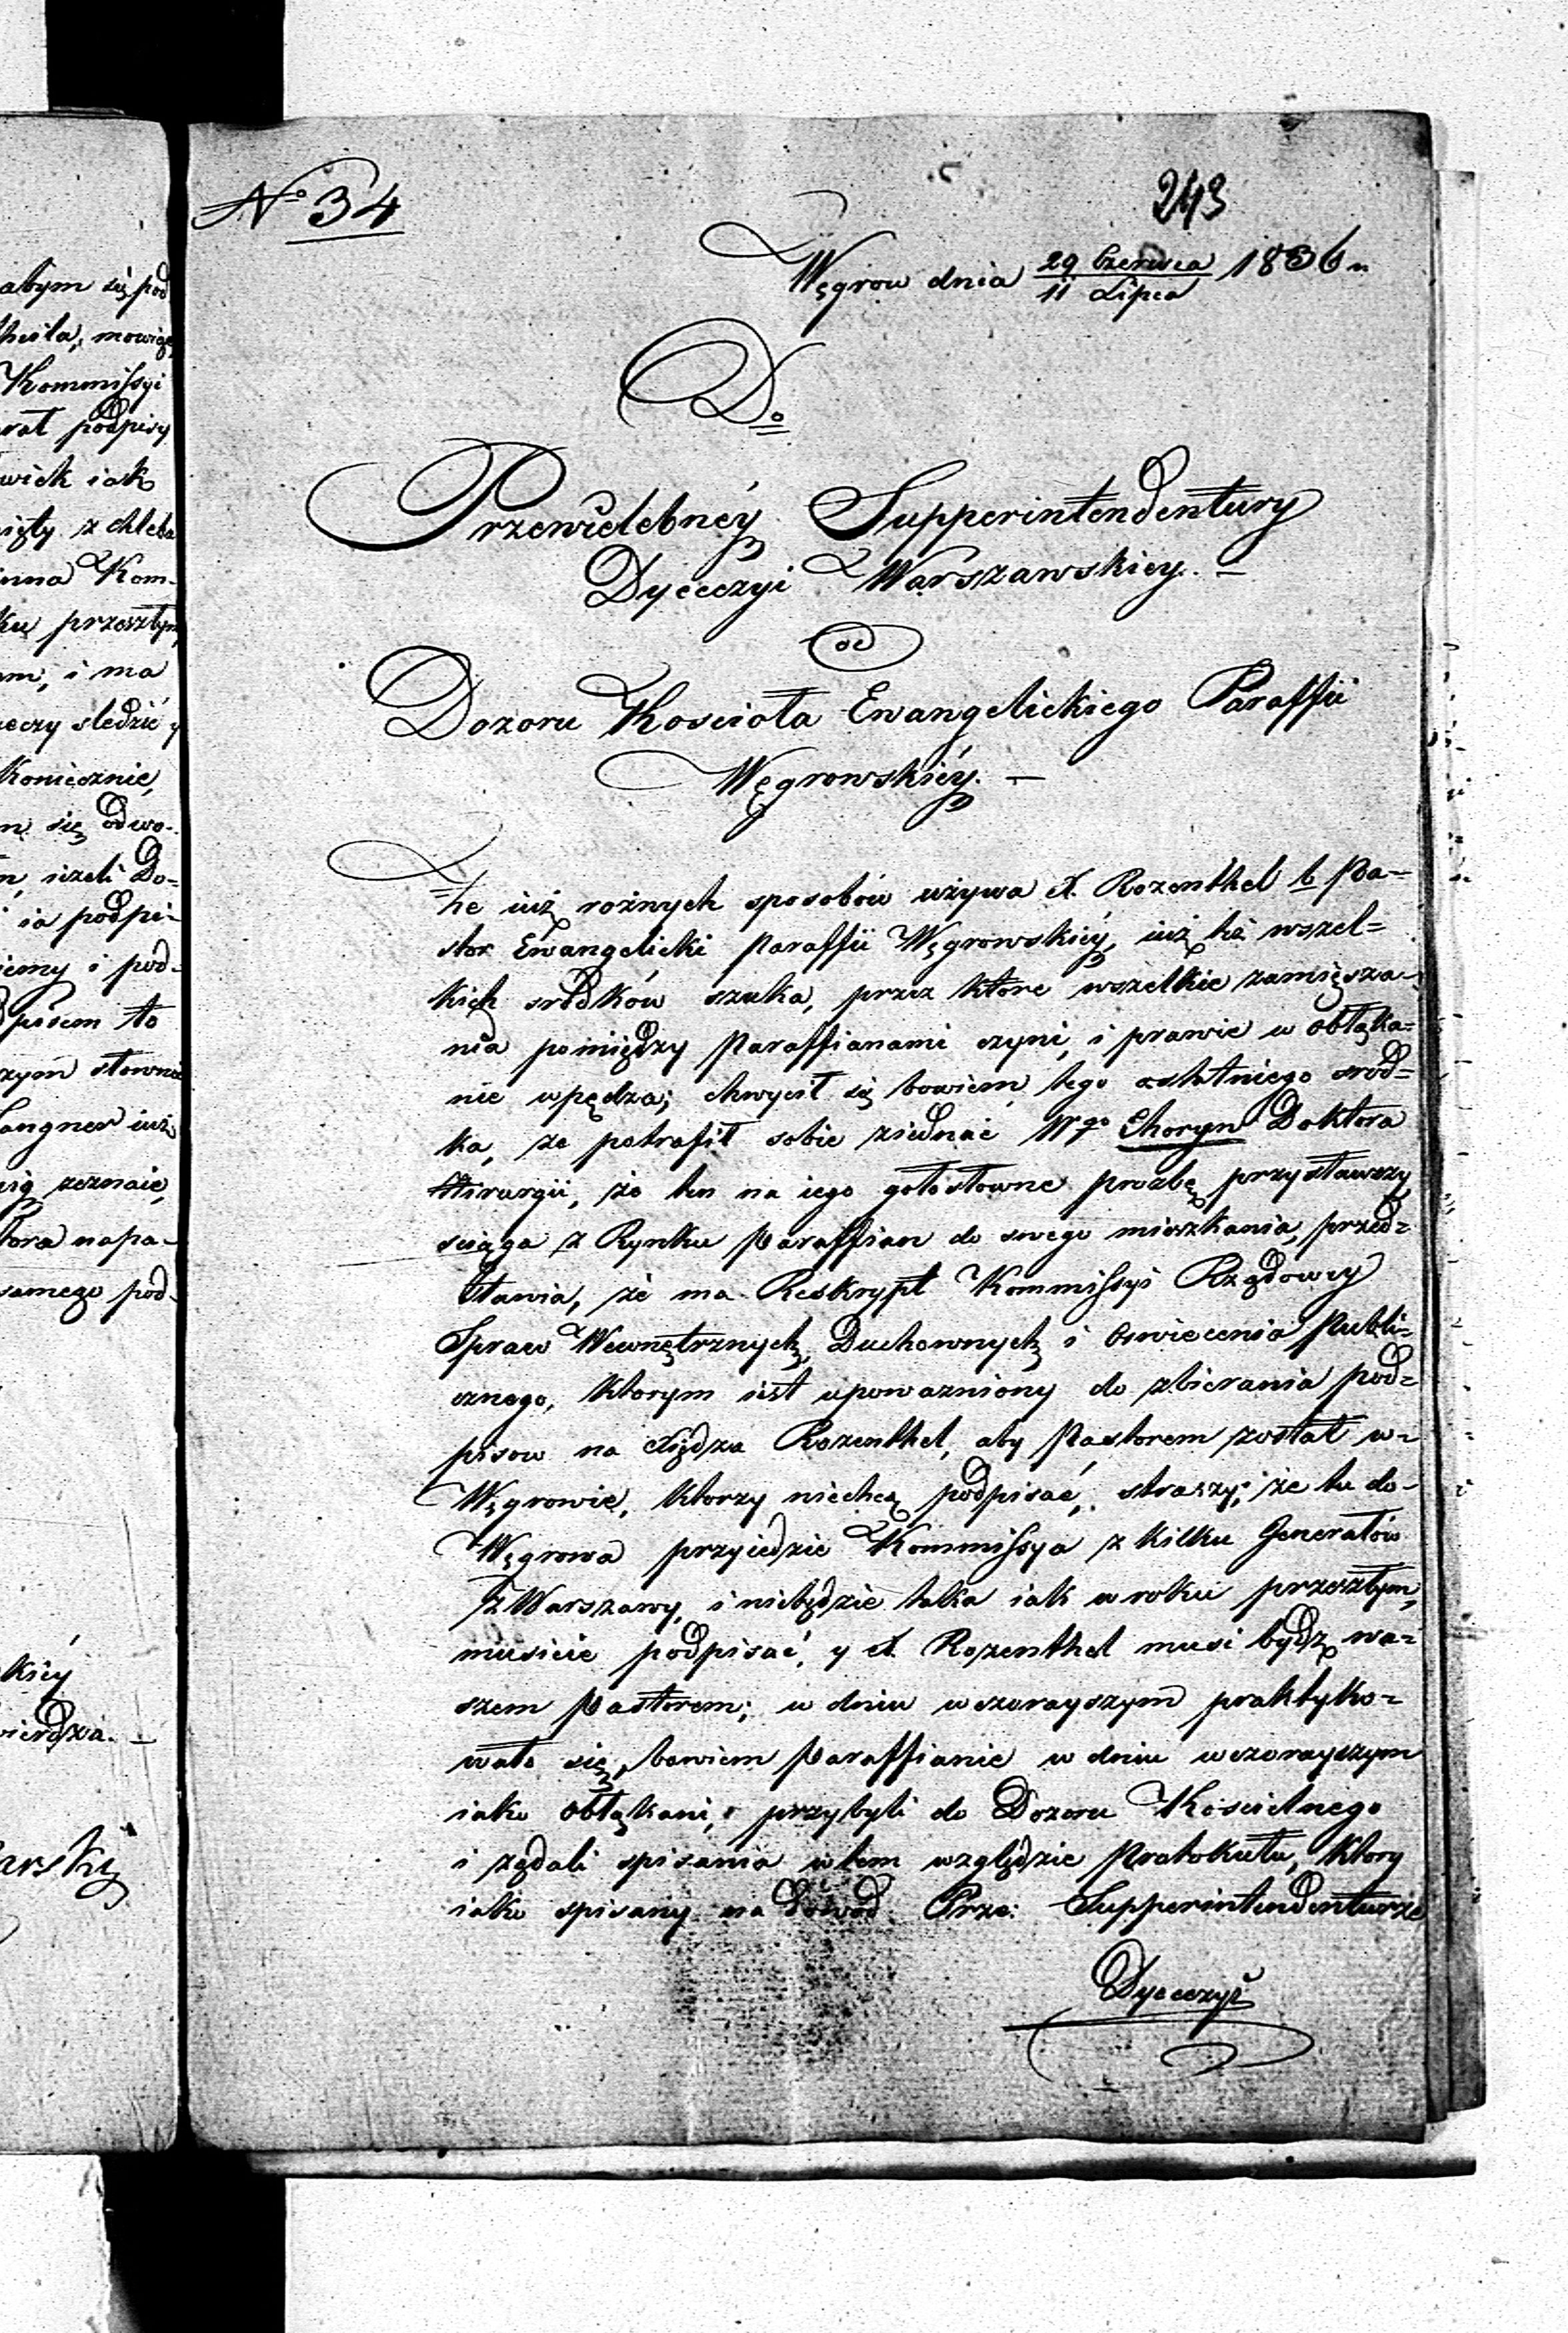 abym się pod
mowiąc
Kommissyi
podpisy
wiek iak
z chleba
Kom-
ku przeszłym
m, i ma
rzeczy śledzić y
Koniecznie,
się odwo-
ieżeli Do=
ia podpi-
i pod-
pisem to
słownie
Langner iuż
zeznaie,
napa-
samego pod-
kiéy
wierdza. –
arski
No 34
243
Węgrow dnia 29 Czerwca / 11 Lipca 1836 r.
Do
Przewielebnéy Supperintendentury
Dyecezyi Warszawskiey. –
od
Dozoru Kościoła Ewangelickiego Paraffii
Węgrowskiéy. –
Że iuż rożnych sposobów używa X. Rozenthel b Pa=
stor Ewangelicki Paraffii Węgrowskiéy, iuż to wszel=
kich srodków szuka, przez ktore wszelkie zamięsza-
nia pomiędzy Paraffianami czyni, i prawie w obłąka=
nie wpędza; chwycił się bowiem tego ostatniego srod=
ka, ze potrafił sobie ziednać Wgo Choryn Doktora
Hirurgii, że ten na iego gołosłowne prozbę przystawszy
sciąga z Rynku Paraffian do swego mieszkania, przed=
stawia, że ma Reskrypt Kommissyi Rządowey
Spraw Wewnętrznych, Duchownych i Oswiecenia Publi=
cznego, ktorym iest upowazniony do zbierania pod=
pisow na Xiędza Rozenthel, aby Pastorem został w=
Węgrowie, ktorzy niechcą podpisać, straszy; że tu do-
Węgrowa przyiedzie Kommissya z kilku Generałów
z Warszawy, i niebędzie taka iak w roku przeszłym,
musicie podpisać, y X Rozenthel musi bydź wa=
szem Pastorem; w dniu wczorayszym praktyko=
wało się, bowiem Paraffianie w dniu wczorayszym
iako obłąkani, przybyli do Dozoru Kościelnego
i żądali spisania w tem względzie Protokułu, ktory
iako spisany na dowód Prze: Supperintendenturze
Dyecezyi